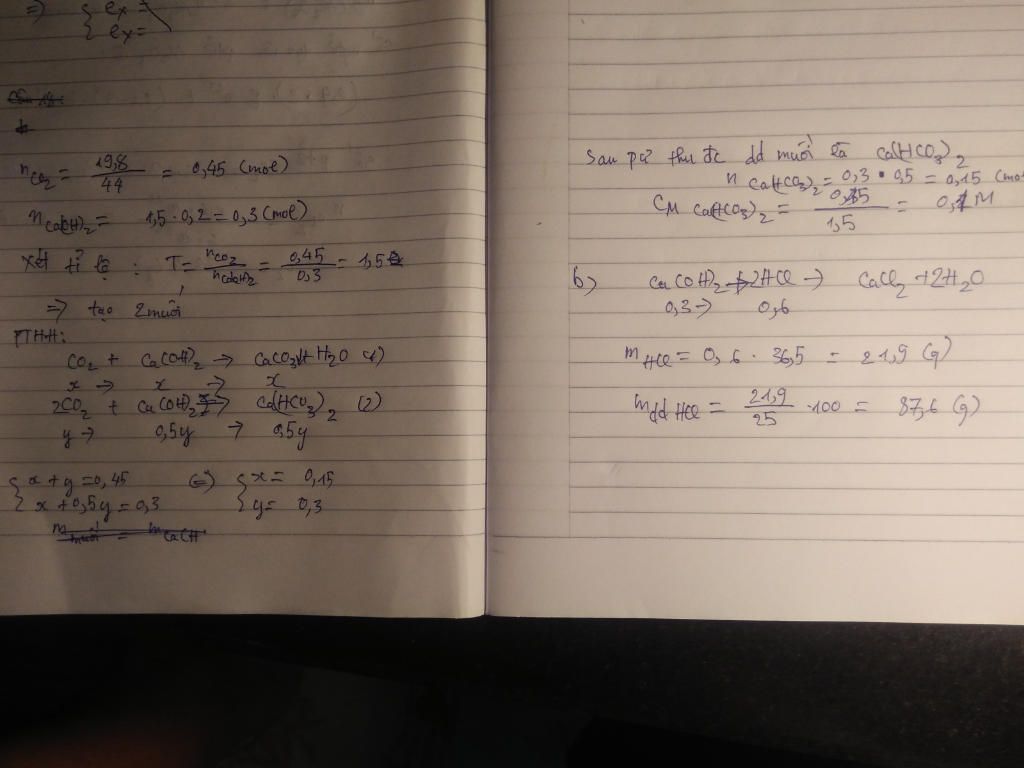 => { ex =
ex =
nCO₂ = 19,8/44 = 0,45 (mol)
nCa(OH)₂ = 1,5 · 0,2 = 0,3 (mol)
Xét tỉ lệ : T = nCO₂/nCa(OH)₂ = 0,45/0,3 = 1,5
=> tạo 2 muối
PTHH:
CO₂ + Ca(OH)₂ → CaCO₃ + H₂O (1)
x → x → x
2CO₂ + Ca(OH)₂ → Ca(HCO₃)₂ (2)
y → 0,5y → 0,5y
{ x + y = 0,45 <=> { x = 0,15
x + 0,5y = 0,3 y = 0,3
m muối = m CaCH
Sau pứ thu đc dd muối là Ca(HCO₃)₂
nCa(HCO₃)₂ = 0,3 · 0,5 = 0,15 (mol
CM Ca(HCO₃)₂ = 0,15/1,5 = 0,1 M
b) Ca(OH)₂ + 2HCl → CaCl₂ + 2H₂O
0,3 → 0,6
mHCl = 0,6 · 36,5 = 21,9 (g)
mdd HCl = 21,9/25 · 100 = 87,6 (g)